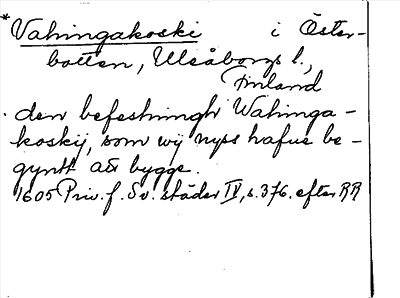 * Vahingakoski i Öster-
botten, Uleåborgs l.,
Finland
. den befestningh Wahinga-
koskij, som wij nyss hafue be-
gyntt att bygge.
1605 Priv. f. Sv. städer IV, s. 376. efter RR